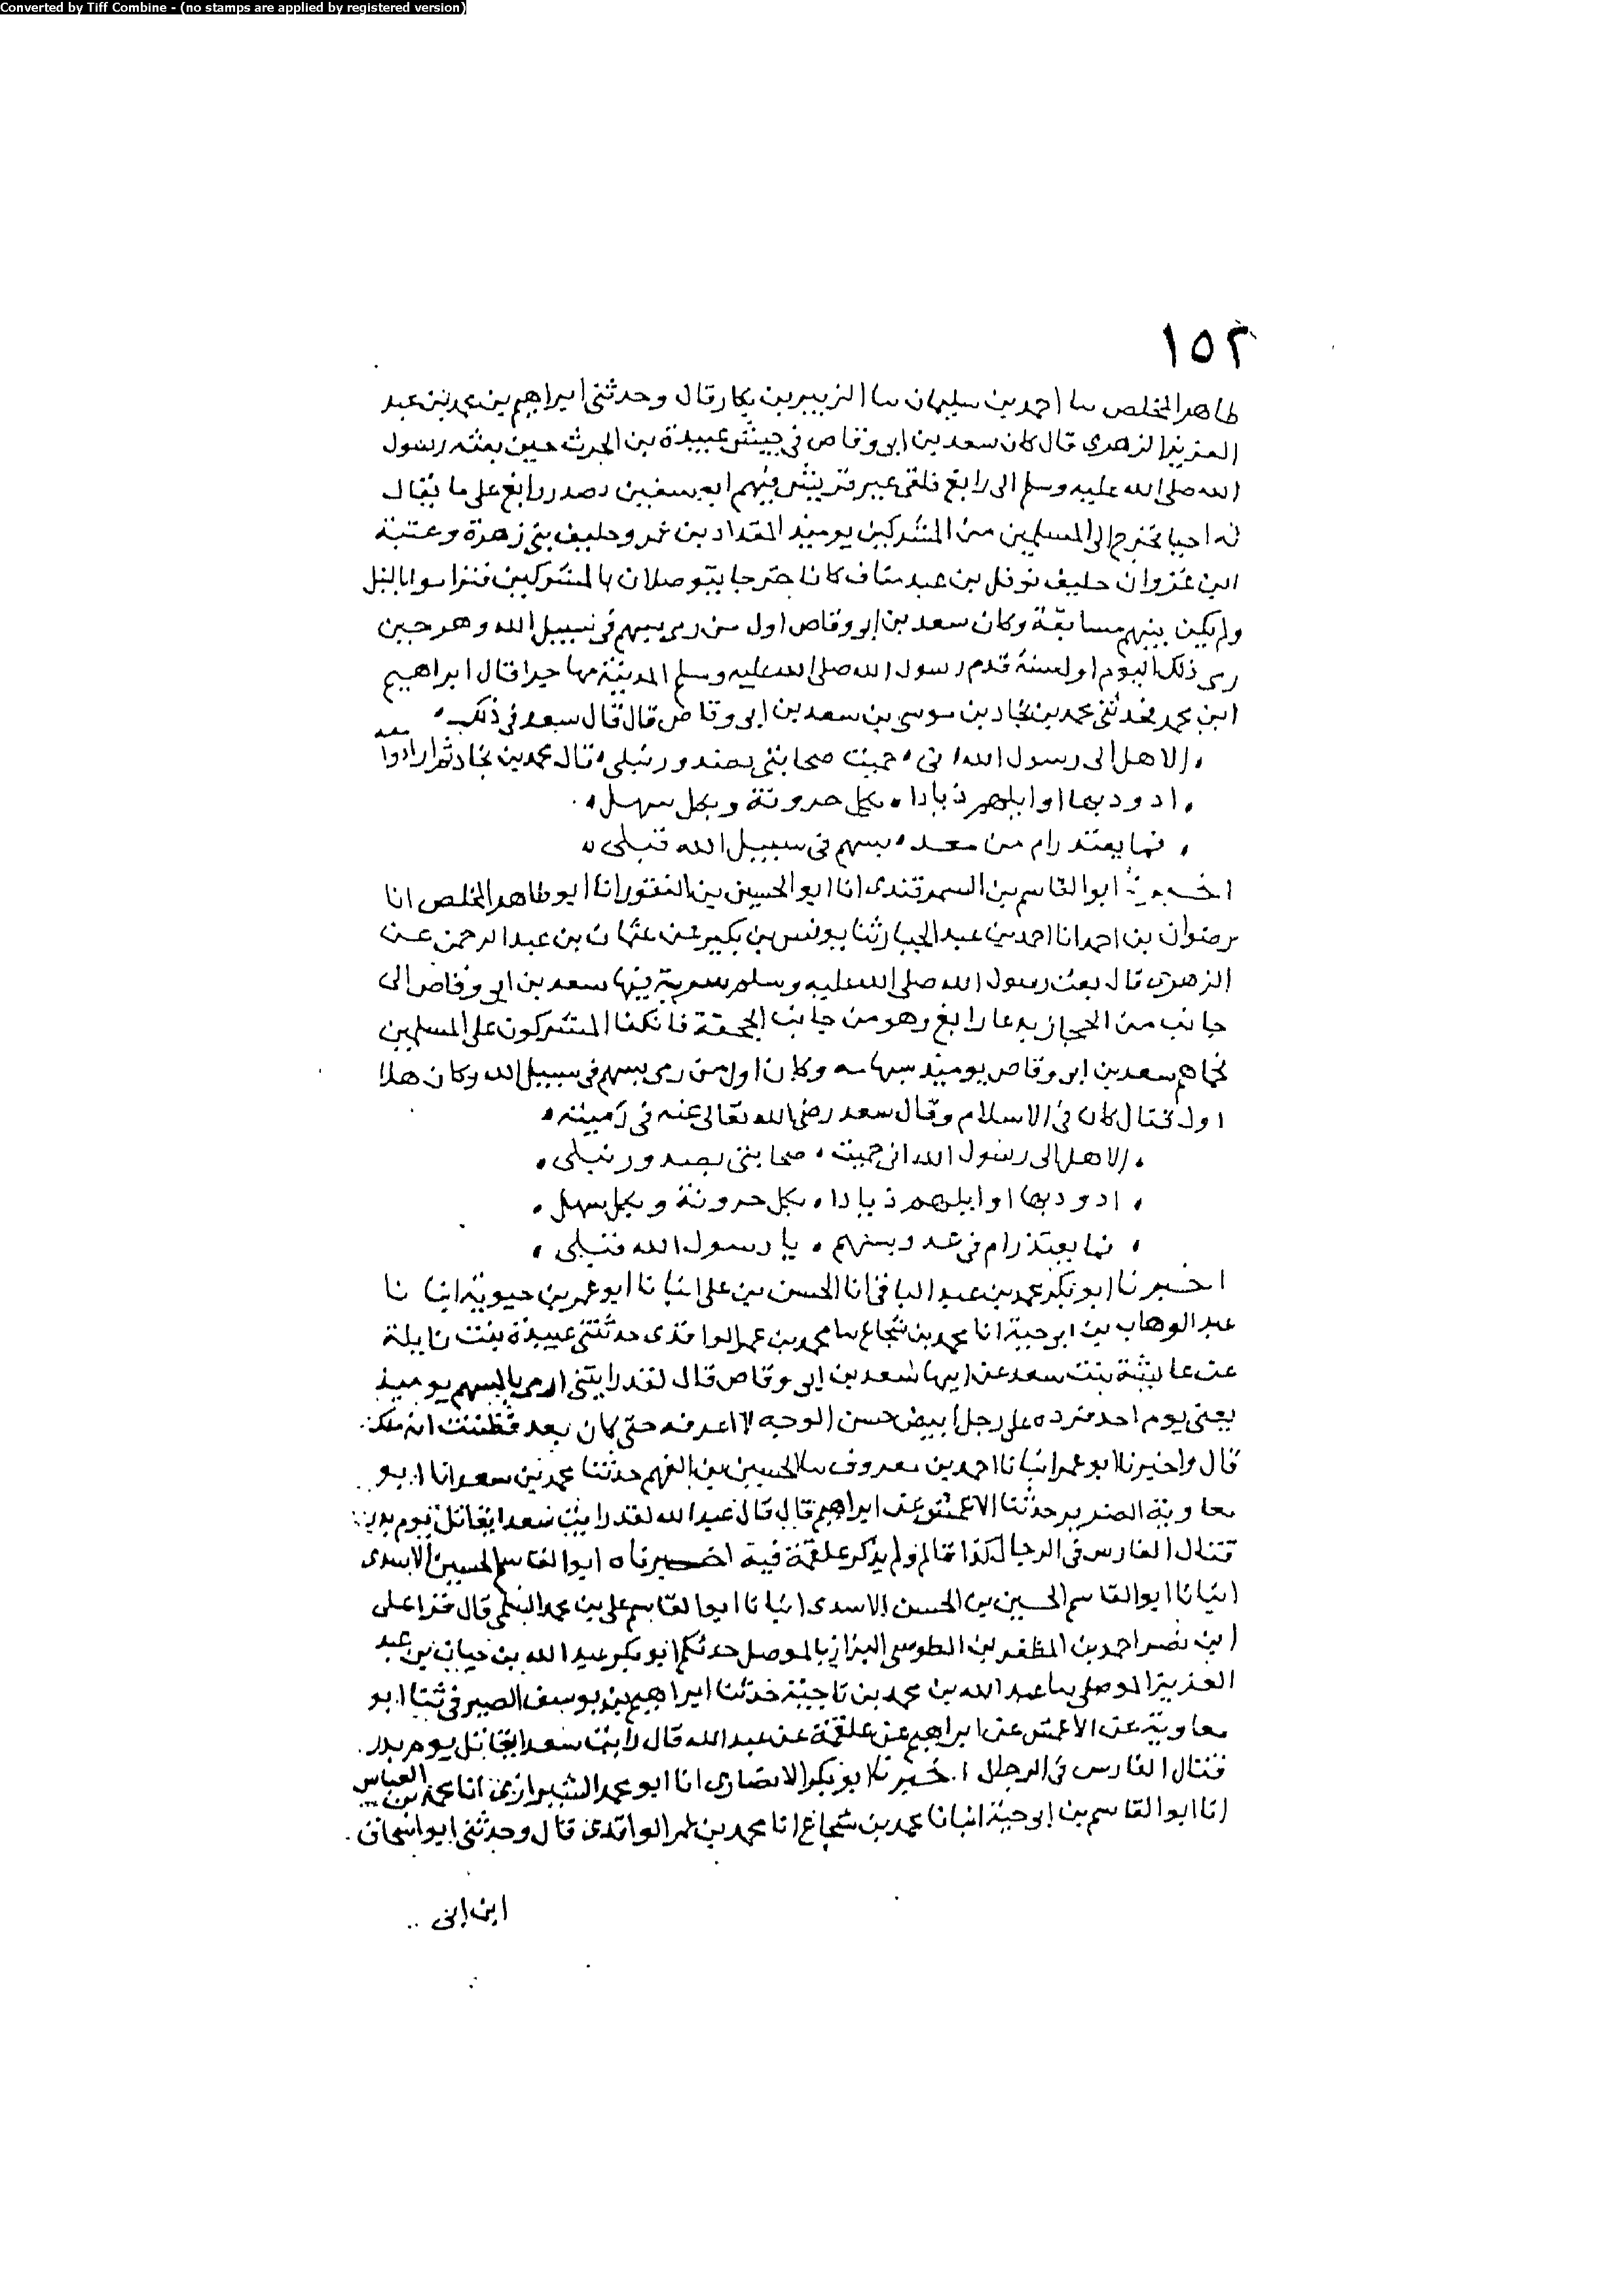 Converted by Tiff Combine - (no stamps are applied by registered version)
١٥٢
طاهر المخلص نا احمد بن سليمان نا الزبير بن بكار قال وحدثنى ابراهيم بن محمد بن عبد
العزيز الزهرى قال كان سعد بن ابى وقاص فى جيش عبيدة بن الحرث حين بعثه رسول
الله صلى الله عليه وسلم الى رابغ فلقى عير قريش فيهم ابو سفين وصدر رابغ على ما يقال
له احيا فخرج الى المسلمين من المشركين يوميذ المقداد بن عمرو حليف بنى زهرة وعتبة
ابن غزوان حليف نوفل بن عبد مناف كانا خرجا يتوصلان بالمشركين فتراموا بالنبل
ولم يكن بينهم مسابقة وكان سعد بن ابى وقاص اول من رمى بسهم فى سبيل الله وهو حين
رمى ذلك اليوم اول سنة قدم رسول الله صلى الله عليه وسلم المدينة مهاجرا قال ابراهيم
ابن محمد فحدثنى محمد بن بجاد بن موسى بن سعد بن ابى وقاص قال قال سعد فى ذلك
الا هل الى رسول الله انى حميت صحابتى بصدور نبلى قال محمد بن بجاد ثم ارادوا معد
اذود بها اوايلهم ذيادا بكل حزونة وبكل سهل
فما يعتد رام من معد بسهم فى سبيل الله قبلى
اخبرنا ابو القاسم بن السمرقندى انا ابو الحسين بن النقور انا ابو طاهر المخلص انا
رضوان بن احمد انا احمد بن عبد الجبار ثنا يونس بن بكير عن عثمان بن عبد الرحمن عن
الزهرى قال بعث رسول الله صلى الله عليه وسلم سرية فيها سعد بن ابى وقاص الى
جانب من الحجاز يدعا رابغ وهو من جانب الجحفة فانكفا المشركون على المسلمين
فحماهم سعد بن ابى وقاص يوميذ بسهامه وكان اول من رمى بسهم فى سبيل الله وكان هذا
اول قتال كان فى الاسلام وقال سعد رضى الله تعالى عنه فى رميته
الا هل الى رسول الله انى حميت صحابتى بصدور نبلى
اذود بها اوايلهم ذيادا بكل حزونة وبكل سهل
فما يعتد رام فى عدو بسهم يا رسول الله قبلى
اخبرنا ابو بكر محمد بن عبد الباقى انا الحسن بن على انبانا ابو عمر بن حيوية انبانا
عبد الوهاب بن ابى حية انا محمد بن شجاع نا محمد بن عمر الواقدى حدثتنى عبيدة بنت نابلة
عن عايشة بنت سعد عن ابيها سعد بن ابى وقاص قال لقد رايتنى ارمى بالسهم يوميذ
يعنى يوم احد فيرده على رجل ابيض حسن الوجه لا اعرفه حتى كان بعد فظننت انه ملك
قال واخبرنا ابو عمر انبانا احمد بن معروف نا الحسين بن الفهم حدثنا محمد بن سعد انا ابو
معاوية الضرير حدثنا الاعمش عن ابراهيم قال قال عبد الله لقد رايت سعدا يقاتل يوم بدر
قتال الفارس فى الرجال كذا قال ولم يذكر علقمة فيه اخبرناه ابو القاسم الحسين الاسدى
انبانا ابو القاسم الحسين بن الحسن الاسدى انبانا ابو القاسم على بن محمد السلمى قال قرا على
ابن نصر احمد بن المظفر بن الطوسى البزاز بالموصل حدثكم ابو بكر عبد الله بن حيان بن عبد
العزيز الموصلى نا عبد الله بن محمد بن ناجية حدثنا ابراهيم بن يوسف الصيرفى ثنا ابو
معاوية عن الاعمش عن ابراهيم عن علقمة عن عبد الله قال رايت سعدا يقاتل يوم بدر
قتال الفارس فى الرجال اخبرنا ابو بكر الانصارى انا ابو محمد الشيرازى انا محمد بن العباس
انا ابو القاسم بن ابى حية انبانا محمد بن شجاع انا محمد بن عمر الواقدى قال وحدثنى ابو اسحاق
ابن ابى